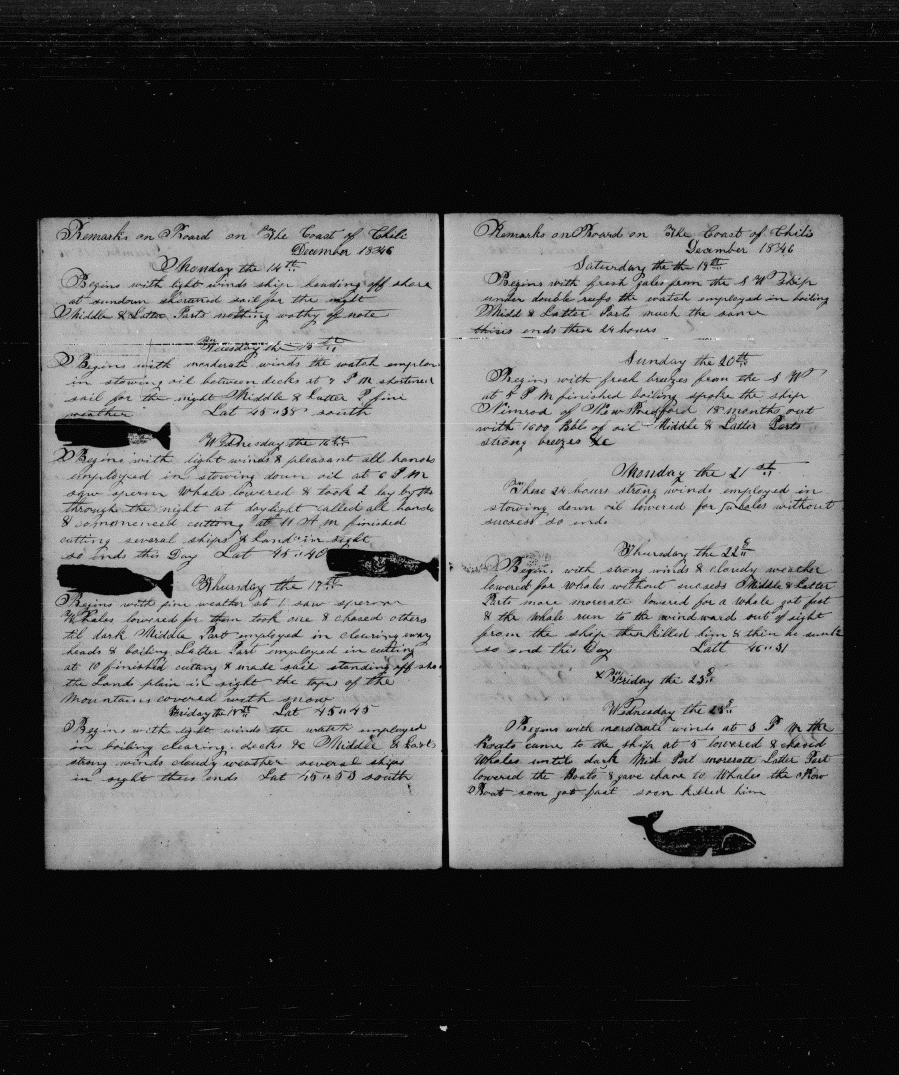 Remarks on Board on The Coast of Chili
December 18346
Monday the 14th
Begins with light winds ship heading off shore
at sundown shortened sail for the night
Middle & Latter Parts nothing wothy of note
Tuesday the 15th
Begins with morderate winds the watch employ
in stowing oil between decks at 7 P M shortened
sail for the night Middle & Latter P fine
weather Lat 45"38 south
Wednesday the 16th
Begins with light winds & pleasant all hands
employed in stowing down oil at 6 P M
saw sperm Whales lowered & took 2 lay by the
through the night at daylight called all hands
& commenced cutting at 11 A M finished
cutting several ships & Land in sight
so ends this Day Lat 45"40
Thursday the 17th
Begins with fine weather at 1 saw sperm
Whales lowered for them took one & chased others
til dark Middle Part employed in clearing away
heads & boiling Latter Part employed in cutting
at 10 finished cutting & made sail standing off sho
the Lands plain in sight the tops of the
Mountains covered with snow
Friday the 18th Lat 45"45
Begins with light winds the watch employed
in boiling clearing decks &c Middle & Latt
strong winds cloudy weather several ships
in sight thus ends Lat 45"53 south
Remarks on Board on The Coast of Chili
December 18346
Saturday the the 19th
Begins with fresh gales from the S W Ship
under double reefs the watch employed in boiling
Midd & Latter Parts much the same
thus ends these 24 hours
Sunday the 20th
Begins with fresh breizes from the S W
at 5 P M finished boiling spoke the ship
Nimrod of New Bedford 18 months out
with 1600 Bbls of oil Middle & Latter Parts
strong breezes &c
Monday the 21st
These 24 hours strong winds employed in
stowing down oil lowered for whales without
success so ends
Thursday the 22d
Begins with strong winds & cloudy weather
lowered for Whales without sucess Middle & Latter
Parts more morerate lowered for a whale got fast
& the whale run to the windward out of sight
from the ship then killed him & then he sunk
so end this Day Latt 46"31
x Friday the 23d
Wednesday the 23d
Begins with morderate winds at 3 P M the
Boats came to the ship at 5 lowered & chased
Whales until dark Mid Part morerate Latter Part
lowered the Boats & gave chase to Whales the Bow
Boat soon got fast soon killed him